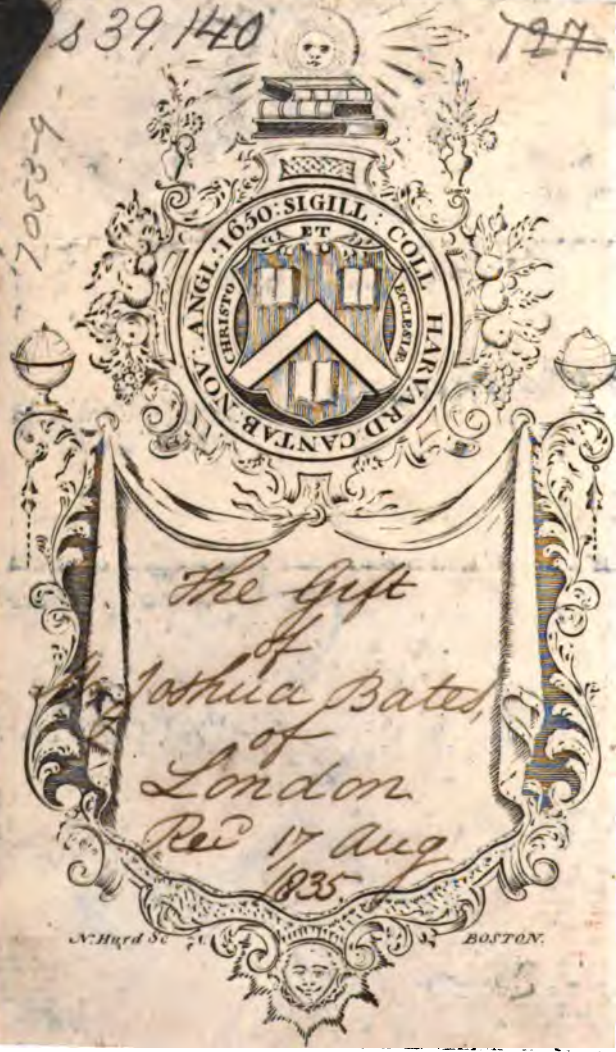 s 39.140
727
7053-9
SIGILL : COLL HARVARD CANTAB: NOV: ANGL: 1650:
ET
CHRISTO
ECCLESIÆ
The Gift
of
Mr Joshua Bates,
of
London
Recd 17 Aug
1835
N. Hurd Sc
BOSTON.